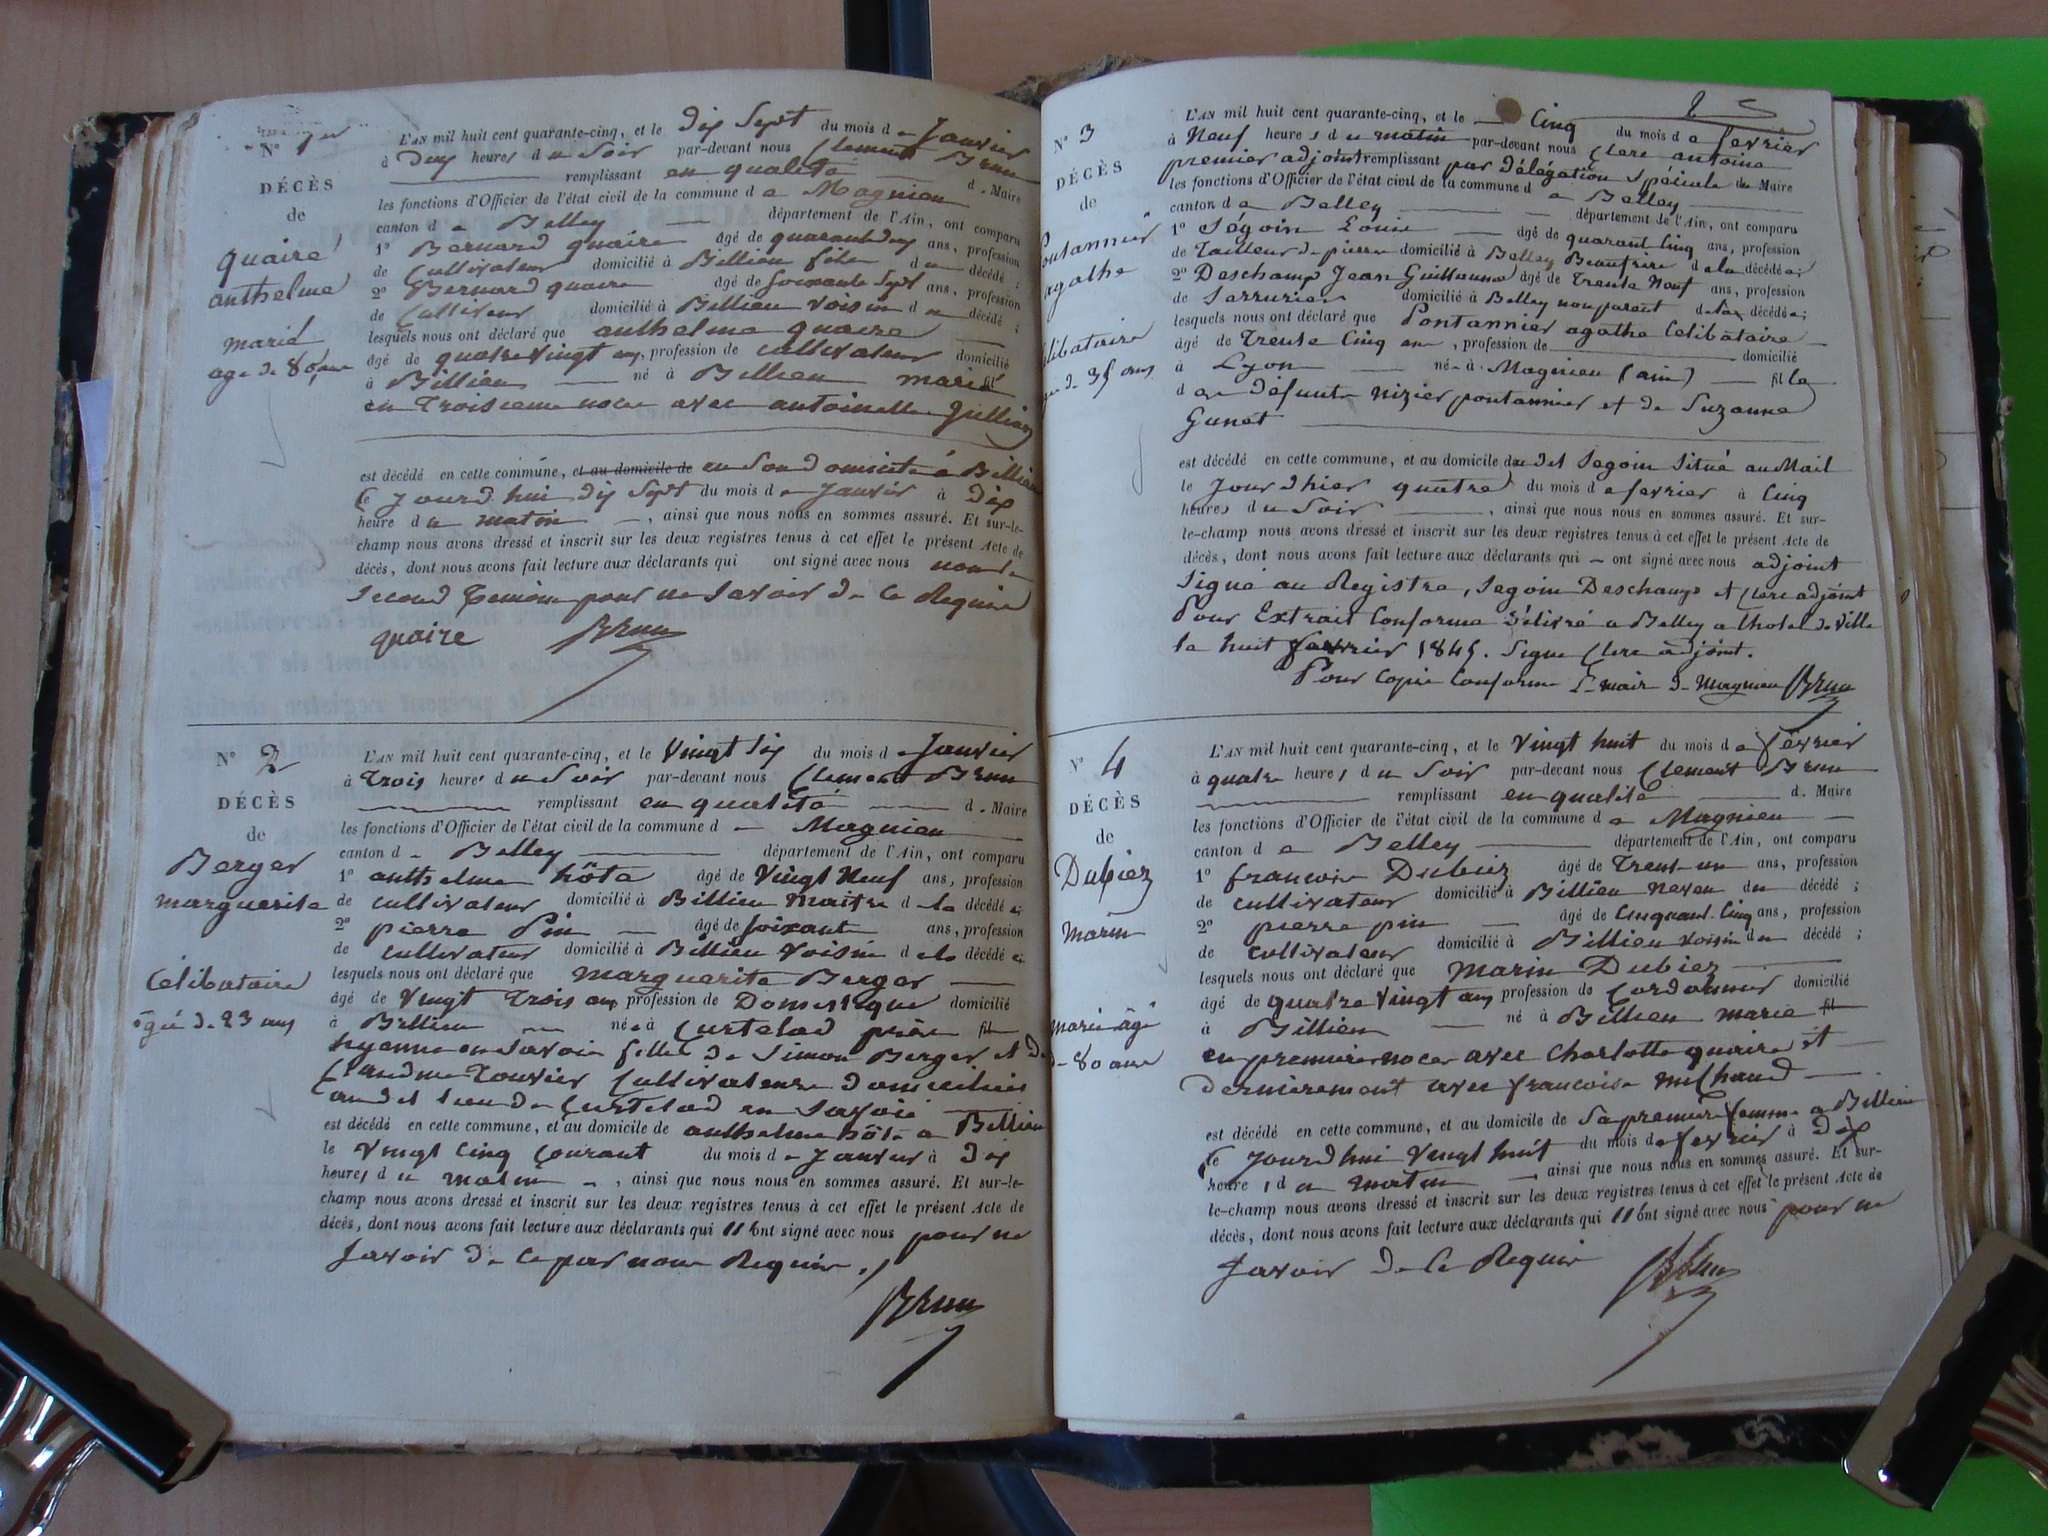 N° 1er
DÉCÈS
de
quaire
anthelme
marié
age de 80 ans
L'AN mil huit cent quarante-cinq, et le dix Sept du mois de Janvier
à deux heures du Soir par-devant nous Clement Brun
remplissant en qualité de Maire
les fonctions d'Officier de l'état civil de la commune de Magnieu
canton de Belley département de l'Ain, ont comparu
1° Bernard quaire âgé de quarante deux ans, profession
de Cultivateur domicilié à Billieu fils du décédé ;
2° Bernard quaire âgé de Soixante Sept ans, profession
de Cultivateur domicilié à Billieu voisin du décédé ;
lesquels nous ont déclaré que anthelme quaire
âgé de quatre vingt ans, profession de cultivateur domicilié
à Billieu né à Billieu marié fil
en troisieme noce avec antoinette Jullian
est décédé en cette commune, et au domicile de en Son domicile à Billieu
le Jourd'hui dix Sept du mois de Janvier à dix
heure du matin, ainsi que nous nous en sommes assuré. Et sur-le-
champ nous avons dressé et inscrit sur les deux registres tenus à cet effet le présent Acte de
décès, dont nous avons fait lecture aux déclarants qui ont signé avec nous non le
Second temoin pour ne Savoir de ce Requis
quaire Brun
N° 2
DÉCÈS
de
Berger
marguerite
Célibataire
agé de 23 ans
L'AN mil huit cent quarante-cinq, et le vingt Six du mois de Janvier
à trois heures du Soir par-devant nous Clement Brun
remplissant en qualité de Maire
les fonctions d'Officier de l'état civil de la commune de Magnieu
canton de Belley département de l'Ain, ont comparu
1° anthelme hôte âgé de Vingt Neuf ans, profession
de cultivateur domicilié à Billieu Maitre de la décédée ;
2° pierre Pin âgé de Soixante ans, profession
de cultivateur domicilié à Billieu Voisin de la décédée ;
lesquels nous ont déclaré que Marguerite Berger
âgé de vingt trois ans, profession de Domestique domicilié
à Billieu née à Curtelod près fil
hyenne en Savoie fille de Simon Berger et de
Claudine Touvier Cultivateurs domiciliés
au dit lieu de Curtelod en Savoie
est décédé en cette commune, et au domicile de anthelme hôte a Billieu
le vingt Cinq Courant du mois de Janvier à dix
heures du matin, ainsi que nous nous en sommes assuré. Et sur-le-
champ nous avons dressé et inscrit sur les deux registres tenus à cet effet le présent Acte de
décès, dont nous avons fait lecture aux déclarants qui n'ont signé avec nous pour ne
Savoir de ce par nous Requis
Brun
2
N° 3
DÉCÈS
de
Pontannier
agathe
Célibataire
de 35 ans
L'AN mil huit cent quarante-cinq, et le Cinq du mois de fevrier
à Neuf heures du matin par-devant nous Clerc antoine
premier adjoint remplissant par Délégation Spéciale du Maire
les fonctions d'Officier de l'état civil de la commune de Belley
canton de Belley département de l'Ain, ont comparu
1° Ségoin Louis âgé de quarante Cinq ans, profession
de Tailleur de pierre domicilié à Belley Beaufrère de la décédée ;
2° Deschamps Jean Guillaume âgé de Trente Neuf ans, profession
de Serrurier domicilié à Belley non parent de la décédée ;
lesquels nous ont déclaré que Pontannier agathe Celibataire
âgé de Trente Cinq ans, profession de domicilié
à Lyon née à Magnieu (ain) fille
de Défunts nizier pontannier et de Suzanne
Gunet
est décédé en cette commune, et au domicile du dit Segoin Situé au Mail
le Jour d'hier quatre du mois de fevrier à Cinq
heures du Soir, ainsi que nous nous en sommes assuré. Et sur-
le-champ nous avons dressé et inscrit sur les deux registres tenus à cet effet le présent Acte de
décès, dont nous avons fait lecture aux déclarants qui ont signé avec nous adjoint
Signé au Registre, Segoin Deschamps et Clerc adjoint
Pour Extrait Conforme Délivré a Belley a l'hotel de Ville
le huit fevrier 1845. Signe Clerc adjoint.
Pour Copie Conforme Le maire de Magnieu Brun
N° 4
DÉCÈS
de
Dubiez
Marin
marié âgé
de 80 ans
L'AN mil huit cent quarante-cinq, et le vingt huit du mois de février
à quatre heures du Soir par-devant nous Clement Brun
remplissant en qualité de Maire
les fonctions d'Officier de l'état civil de la commune de Magnieu
canton de Belley département de l'Ain, ont comparu
1° francois Dubiez âgé de Trent un ans, profession
de cultivateur domicilié à Billieu neveu du décédé ;
2° pierre pin âgé de Cinquant Cinq ans, profession
de cultivateur domicilié à Billieu voisin du décédé ;
lesquels nous ont déclaré que Marin Dubiez
âgé de quatre vingt ans profession de Cordonnier domicilié
à Billieu né à Billieu marié fil
en premiere noce avec Charlotte quaire et
dernierement avec francoise Michaud
est décédé en cette commune, et au domicile de Sa premiere femme a Billieu
le Jourd'hui vingt huit du mois de fevrier à dix
heures du matin, ainsi que nous nous en sommes assuré. Et sur-
le-champ nous avons dressé et inscrit sur les deux registres tenus à cet effet le présent Acte de
décès, dont nous avons fait lecture aux déclarants qui n'ont signé avec nous pour ne
Savoir de ce Requis Brun